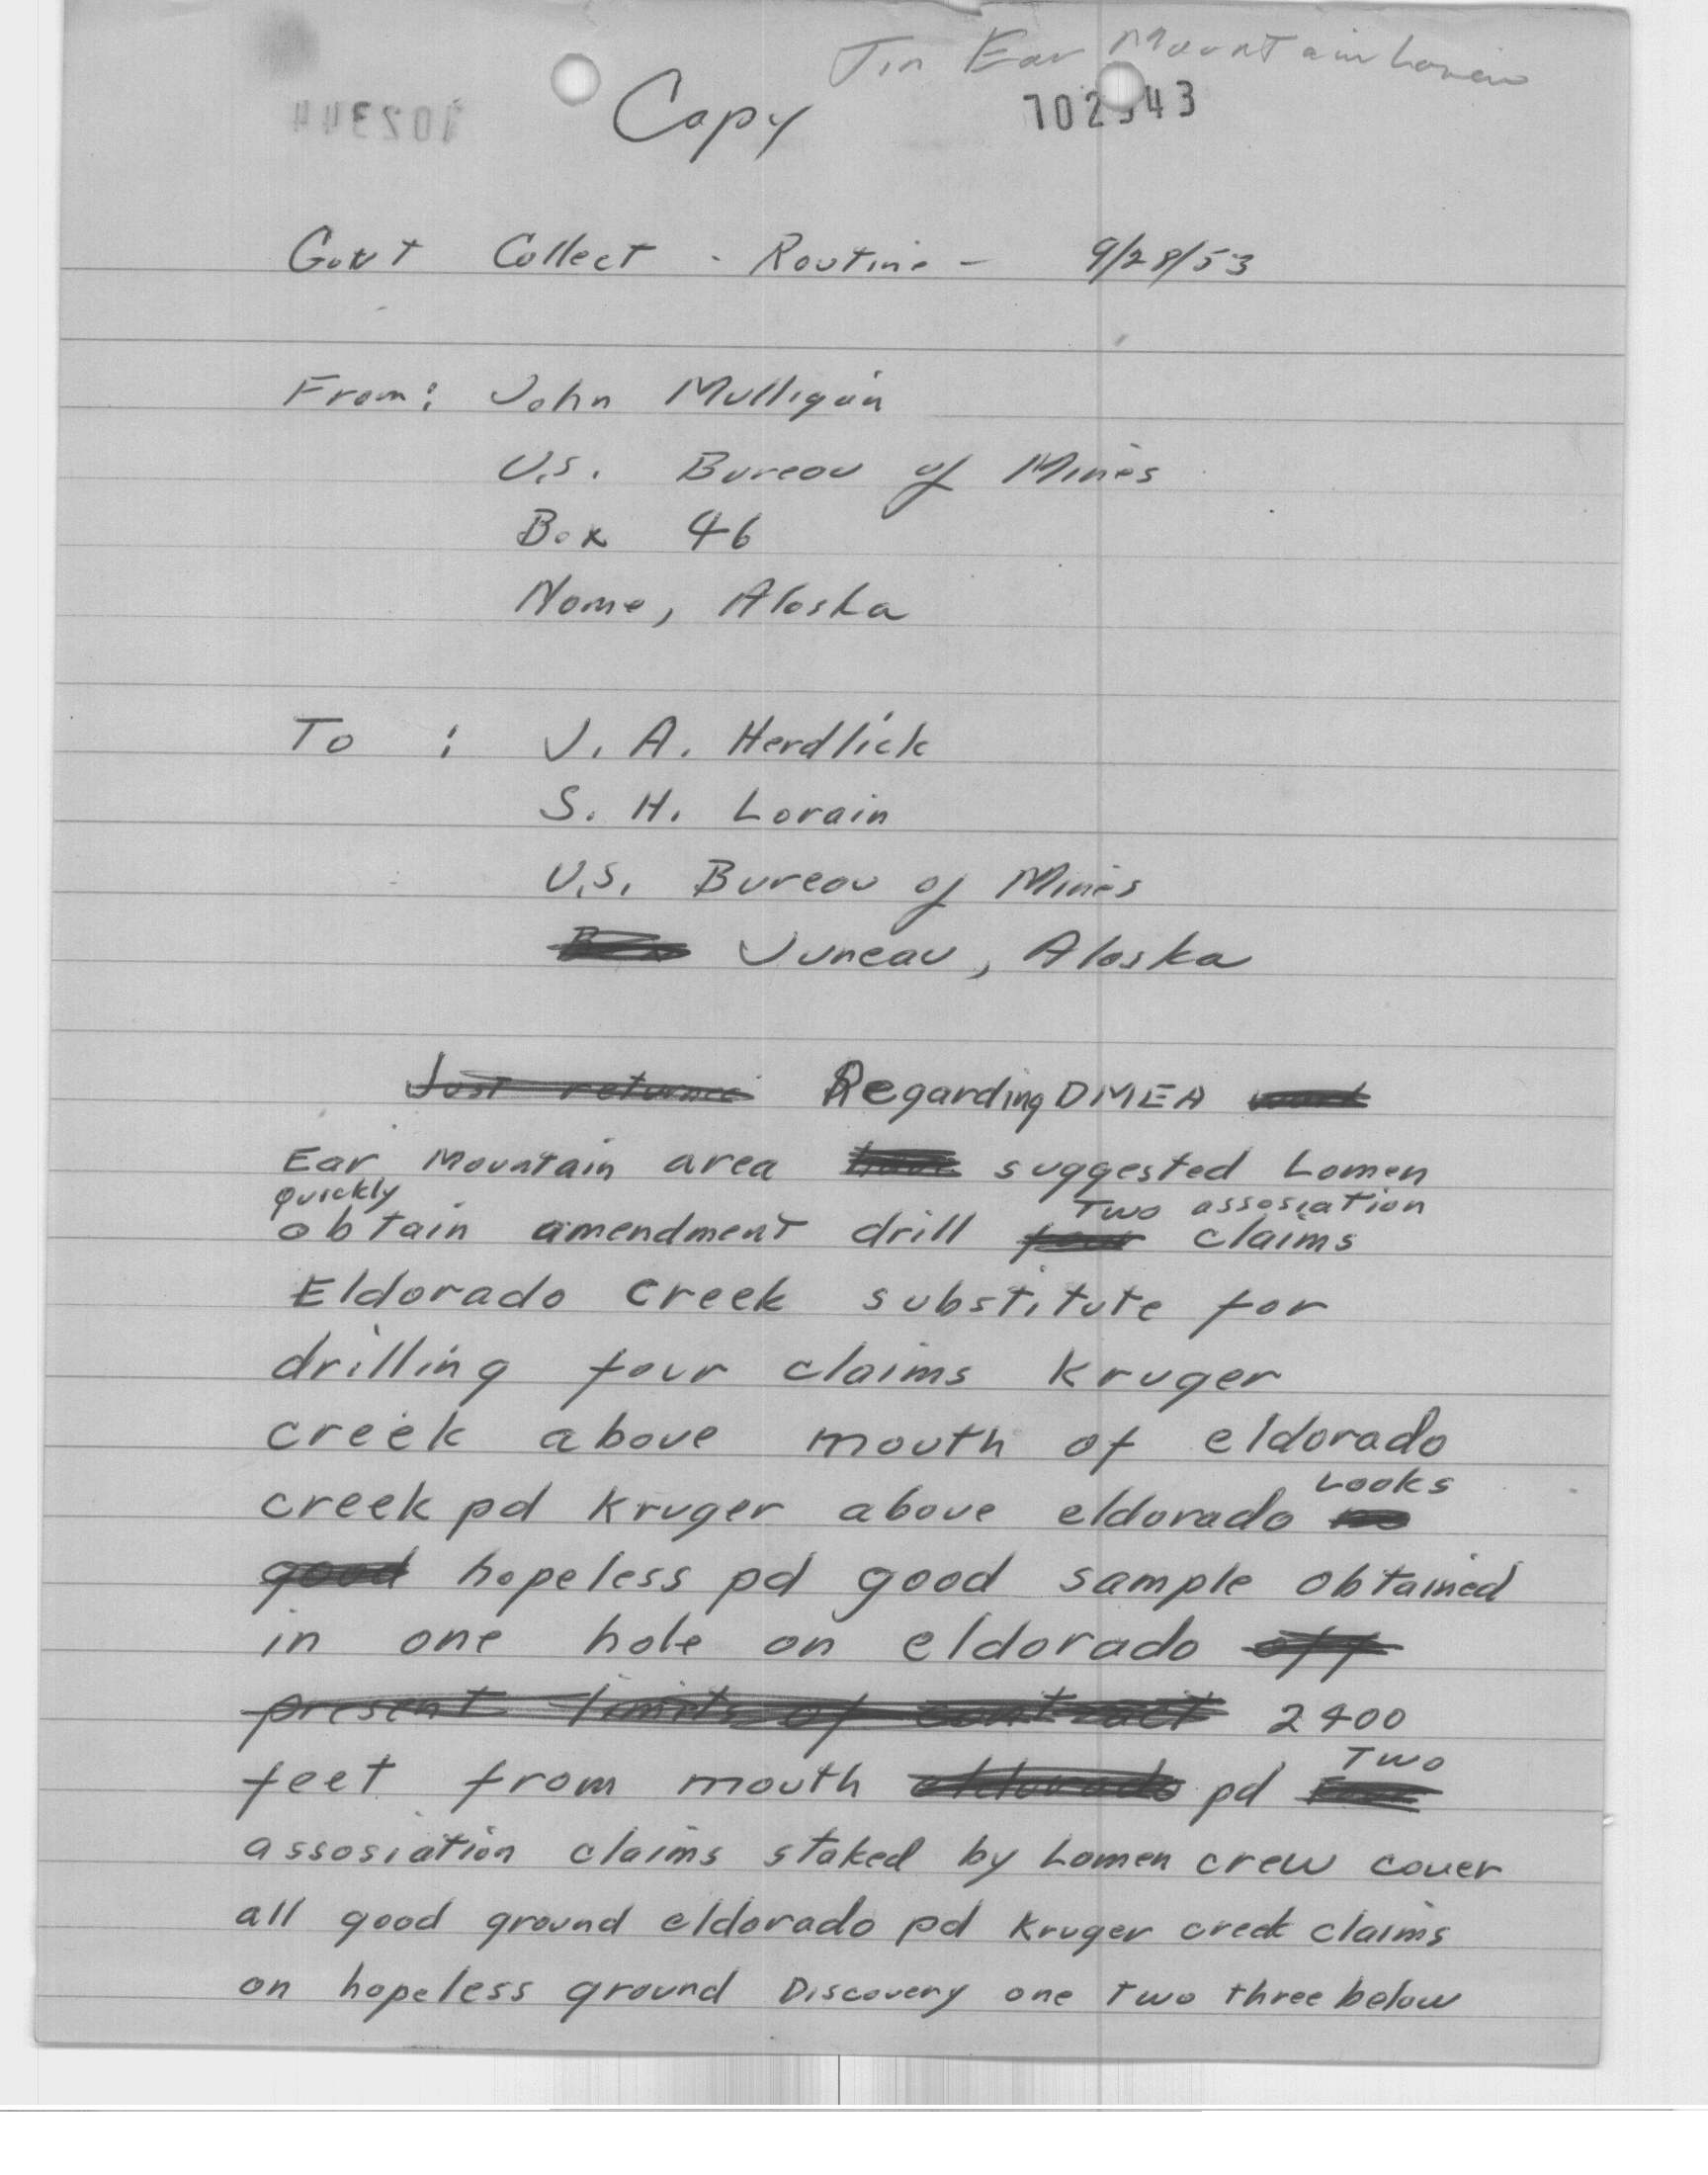 Tin Ear Mountain Lomen
Copy
102343
Gov't Collect - Routine - 9/28/53
From: John Mulligan
U.S. Bureau of Mines
Box 46
Nome, Alaska
To : J. A. Herdlick
S. H. Lorain
U.S. Bureau of Mines
Juneau, Alaska
Just returned Regarding DMEA work
Ear Mountain area have suggested Lomen
quickly
Two assosiation
obtain amendment drill four claims
Eldorado Creek substitute for
drilling four claims Kruger
creek above mouth of eldorado
Looks
creek pd Kruger above eldorado no
good hopeless pd good sample obtained
in one hole on eldorado off
present limits of contract 2400
Two
feet from mouth eldorado pd Four
assosiation claims staked by Lomen crew cover
all good ground eldorado pd Kruger creek claims
on hopeless ground Discovery one two three below